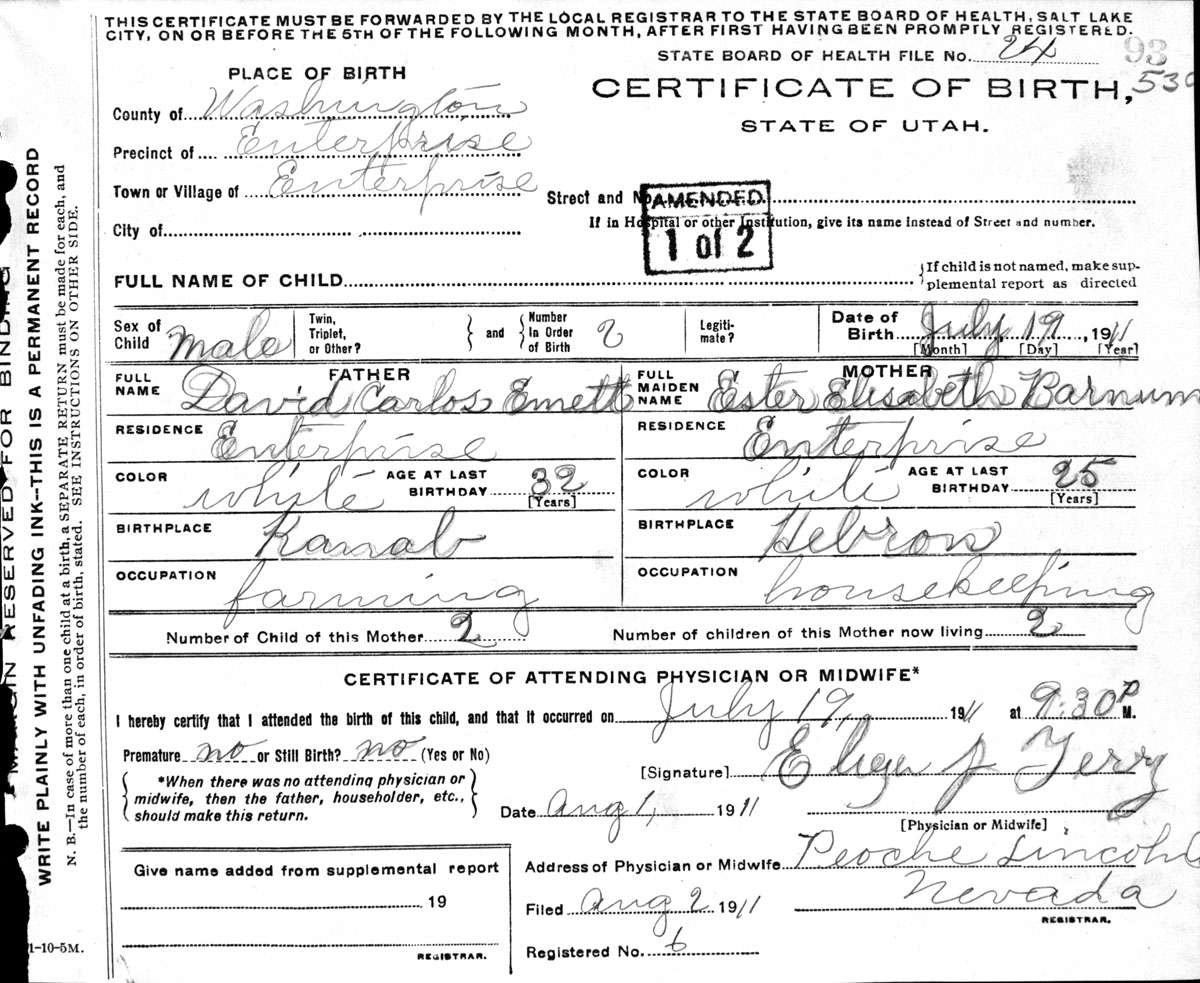 THIS CERTIFICATE MUST BE FORWARDED BY THE LOCAL REGISTRAR TO THE STATE BOARD OF HEALTH, SALT LAKE
CITY, ON OR BEFORE THE 5TH OF THE FOLLOWING MONTH, AFTER FIRST HAVING BEEN PROMPTLY REGISTERED.
STATE BOARD OF HEALTH FILE No. 24 93
PLACE OF BIRTH
CERTIFICATE OF BIRTH, 530
STATE OF UTAH.
County of Washington
Precinct of Enterprise
Town or Village of Enterprise
Street and No
AMENDED
1 of 2
If in Hospital or other Institution, give its name instead of Street and number.
City of
FULL NAME OF CHILD
If child is not named, make sup-
plemental report as directed
Sex of Child Male
Twin, Triplet, or Other?
and
Number In Order of Birth 2
Legiti-mate?
Date of Birth July 19, 1911
[Month] [Day] [Year]
FATHER
FULL NAME David Carlos Emett
MOTHER
FULL MAIDEN NAME Ester Elisabeth Barnum
RESIDENCE Enterprise
RESIDENCE Enterprise
COLOR white AGE AT LAST BIRTHDAY 32 [Years]
COLOR white AGE AT LAST BIRTHDAY 25 [Years]
BIRTHPLACE Kanab
BIRTHPLACE Hebron
OCCUPATION farming
OCCUPATION housekeeping
Number of Child of this Mother 2 Number of children of this Mother now living 2
CERTIFICATE OF ATTENDING PHYSICIAN OR MIDWIFE*
I hereby certify that I attended the birth of this child, and that it occurred on July 19, 1911 at 9:30 P M.
Premature no or Still Birth? no (Yes or No)
*When there was no attending physician or
midwife, then the father, householder, etc.,
should make this return.
[Signature] J Terry
Date Aug 1, 1911
[Physician or Midwife]
Address of Physician or Midwife Peoche Lincohl
Nevada
Filed Aug 2 1911
REGISTRAR.
Registered No. 6
Give name added from supplemental report
19
REGISTRAR.
1-10-5M.
MARGIN RESERVED FOR BINDING
WRITE PLAINLY WITH UNFADING INK--THIS IS A PERMANENT RECORD
N. B.—In case of more than one child at a birth, a SEPARATE RETURN must be made for each, and
the number of each, in order of birth, stated. SEE INSTRUCTIONS ON OTHER SIDE.